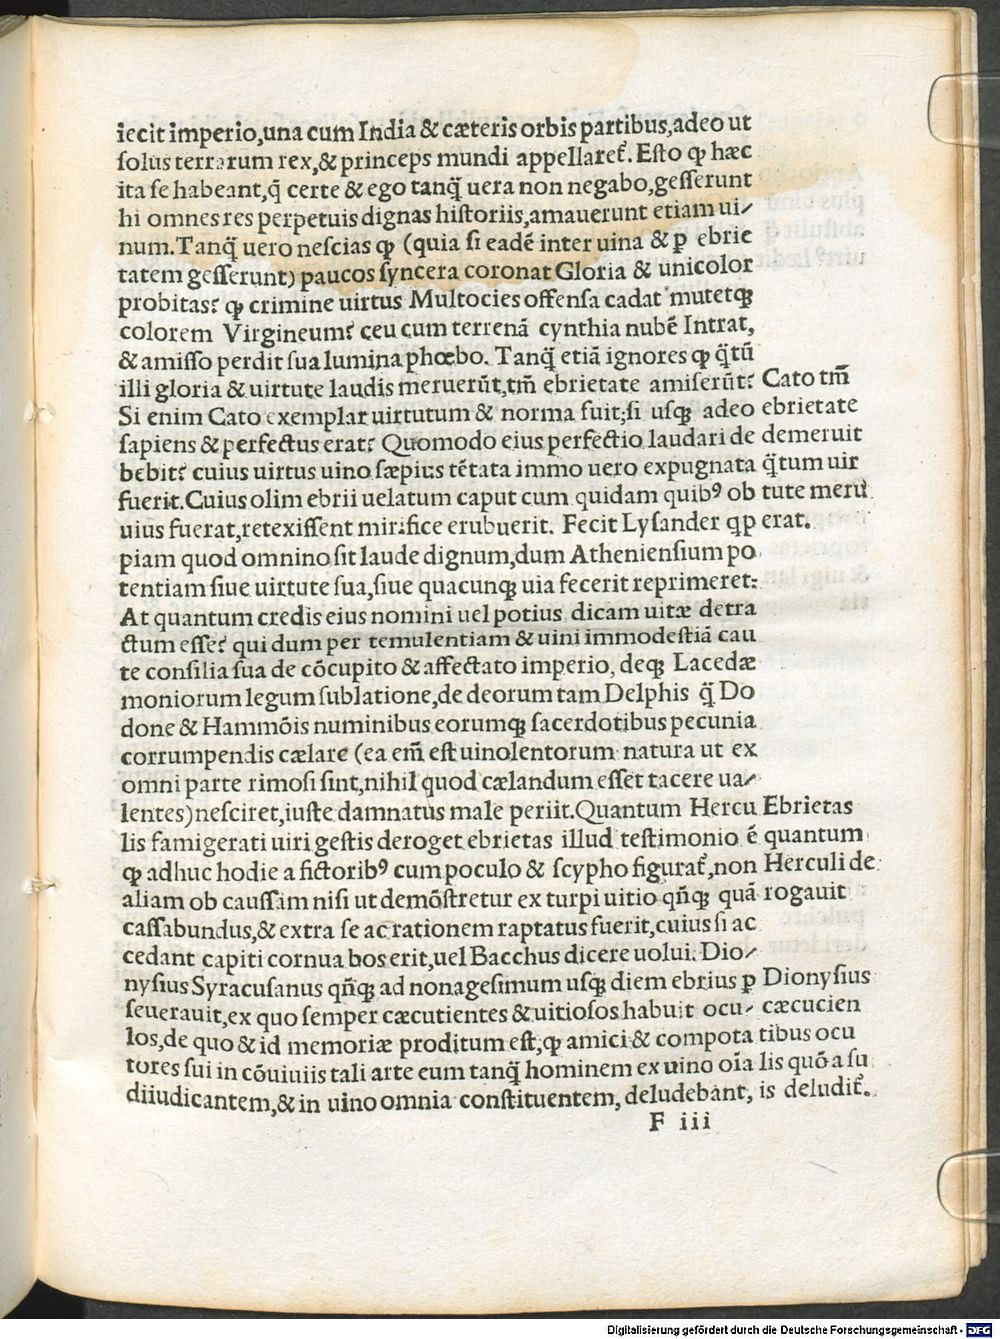 iecit imperio,una cum India & cæteris orbis partibus,adeo ut
solus terrarum rex,& princeps mundi appellaret᷑. Esto ꝙ hæc
ita se habeant,q̃ certe & ego tanq̃ uera non negabo,gesserunt
hi omnes res perpetuis dignas historiis,amauerunt etiam ui/
num.Tanq̃ uero nescias ꝙ (quia si eadẽ inter uina & ꝑ ebrie
tatem gesserunt) paucos syncera coronat Gloria & unicolor
probitas? ꝙ crimine uirtus Multocies offensa cadat mutetqꝫ
colorem Virgineum? ceu cum terrenã cynthia nubẽ Intrat,
& amisso perdit sua lumina phœbo. Tanq̃ etiã ignores ꝙ q̃tũ
illi gloria & uirtute laudis meruerũt,tm̃ ebrietate amiserũt?
Si enim Cato exemplar uirtutum & norma fuit;si usqꝫ adeo
sapiens & perfectus erat? Quomodo eius perfectio laudari de
bebit? cuius uirtus uino sæpius tẽtata immo uero expugnata
fuerit.Cuius olim ebrii uelatum caput cum quidam quibꝰ ob
uius fuerat,retexissent mirifice erubuerit. Fecit Lysander qp
piam quod omnino sit laude dignum,dum Atheniensium po
tentiam siue uirtute sua,siue quacunqꝫ uia fecerit reprimeret:
At quantum credis eius nomini uel potius dicam uitæ detra
ctum esse? qui dum per temulentiam & uini immodestiã cau
te consilia sua de cõcupito & affectato imperio, deqꝫ Lacedæ
moniorum legum sublatione,de deorum tam Delphis q̃ Do
done & Hammõis numinibus eorumqꝫ sacerdotibus pecunia
corrumpendis cælare (ea em̃ est uinolentorum natura ut ex
omni parte rimosi sint,nihil quod cælandum esset tacere ua/
lentes)nesciret,iuste damnatus male periit.Quantum Hercu
lis famigerati uiri gestis deroget ebrietas illud testimonio ẽ
ꝙ adhuc hodie a fictoribꝰ cum poculo & scypho figurat᷑,non
aliam ob caussam nisi ut demõstretur ex turpi uitio qñqꝫ quã
cassabundus,& extra se ac rationem raptatus fuerit,cuius si ac
cedant capiti cornua bos erit,uel Bacchus dicere uolui. Dio/
nysius Syracusanus qñqꝫ ad nonagesimum usqꝫ diem ebrius ꝑ
seuerauit,ex quo semper cæcutientes & uitiosos habuit ocu/
los,de quo & id memoriæ proditum est,ꝙ amici & compota
tores sui in cõuiuiis tali arte eum tanq̃ hominem ex uino oĩa
diiudicantem,& in uino omnia constituentem, deludebant, is
Cato tm̃
ebrietate
demeruit
q̃tum uir
tute meru
erat.
Ebrietas
quantum
Herculi de
rogauit
Dionysius
cæcucien
tibus ocu
lis quõ a su
deludit᷑.
F iii
Digitalisierung gefördert durch die Deutsche Forschungsgemeinschaft - DFG